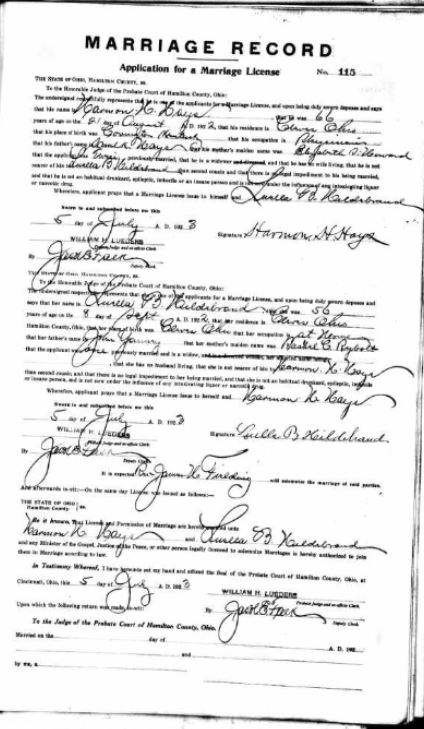 MARRIAGE RECORD
Application for a Marriage License No. 115
THE STATE OF OHIO, HAMILTON COUNTY, ss.
To the Honorable Judge of the Probate Court of Hamilton County, Ohio:
The undersigned respectfully represents that he is one of the applicants for a Marriage License, and upon being duly sworn deposes and says
that his name is Harmon H. Hays that he was 66
years of age on the 21 day of August A. D. 1922, that his residence is Ohio
that his place of birth was Covington Kentucky that his occupation is Physician
that his father's name Hays that his mother's maiden name was Elizabeth Howard
that the applicant was previously married, that he is a widower and that he has no wife living, that he is not
nearer of kin to Luella B. Hildebrand than second cousin and that there is no legal impediment to his being married,
and that he is not an habitual drunkard, epileptic, imbecile or an insane person and is not under the influence of any intoxicating liquor
or narcotic drug.
Wherefore, applicant prays that a Marriage License issue to himself and Luella B. Hildebrand
Sworn to and subscribed before me this
5 day of July A. D. 1923
WILLIAM H. LUEDERS Signature Harmon H. Hays
Probate Judge and ex-officio Clerk.
By
Deputy Clerk.
THE STATE OF OHIO, HAMILTON COUNTY, ss.
To the Honorable Judge of the Probate Court of Hamilton County, Ohio:
The undersigned respectfully represents that she is one of the applicants for a Marriage License, and upon being duly sworn deposes and
says that her name is Luella B. Hildebrand was 56
years of age on the 8 day of Sept A. D. 1922 that her residence is Ohio
Hamilton County, Ohio, that her place of birth was Ohio that her occupation at Home
that her father's name John that her mother's maiden name was
that the applicant was once previously married and is a widow,
that she has no husband living, that she is not nearer of kin to Harmon H. Hays
than second cousin; and that there is no legal impediment to her being married, and that she is not an habitual drunkard, epileptic, imbecile
or insane person, and is not now under the influence of any intoxicating liquor or narcotic drug.
Wherefore, applicant prays that a Marriage License issue to herself and Harmon H. Hays
Sworn to and subscribed before me this
5 day of July A. D. 1923
WILLIAM H. Signature Luella B Hildebrand
Probate Judge and ex-officio Clerk.
By
Deputy Clerk.
It is expected Rev James W. Fielding will solemnize the marriage of said parties.
And afterwards to-wit:—On the same day License was issued as follows:—
THE STATE OF OHIO
Hamilton County ss.
Be it known, That License and Permission of Marriage are hereby granted unto
Harmon H. Hays and Luella B. Hildebrand
and any Minister of the Gospel, Justice of the Peace, or other person legally licensed to solemnize Marriages is hereby authorized to join
them in Marriage according to law.
In Testimony Whereof, I have hereunto set my hand and affixed the Seal of the Probate Court of Hamilton County, Ohio, at
Cincinnati, Ohio, this 5 day of July A. D. 1923
WILLIAM H. LUEDERS
Probate Judge and ex-officio Clerk.
Upon which the following return was made, to-wit: By
Deputy Clerk.
To the Judge of the Probate Court of Hamilton County, Ohio.
Married on the day of A. D. 192
and
by me, a